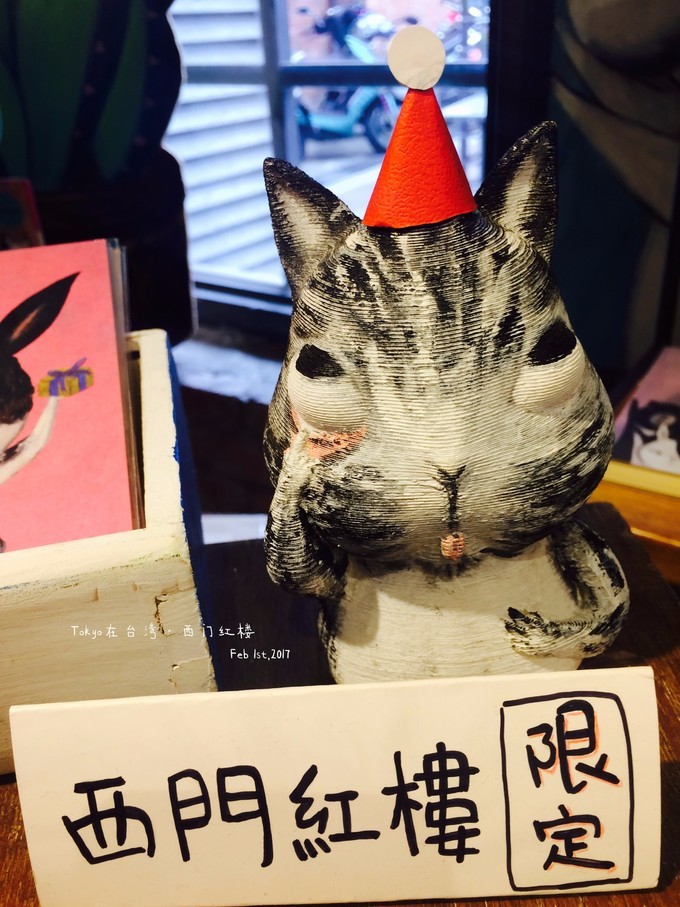 Tokyo在台湾·西门红楼
Feb 1st,2017
西門紅樓
限定